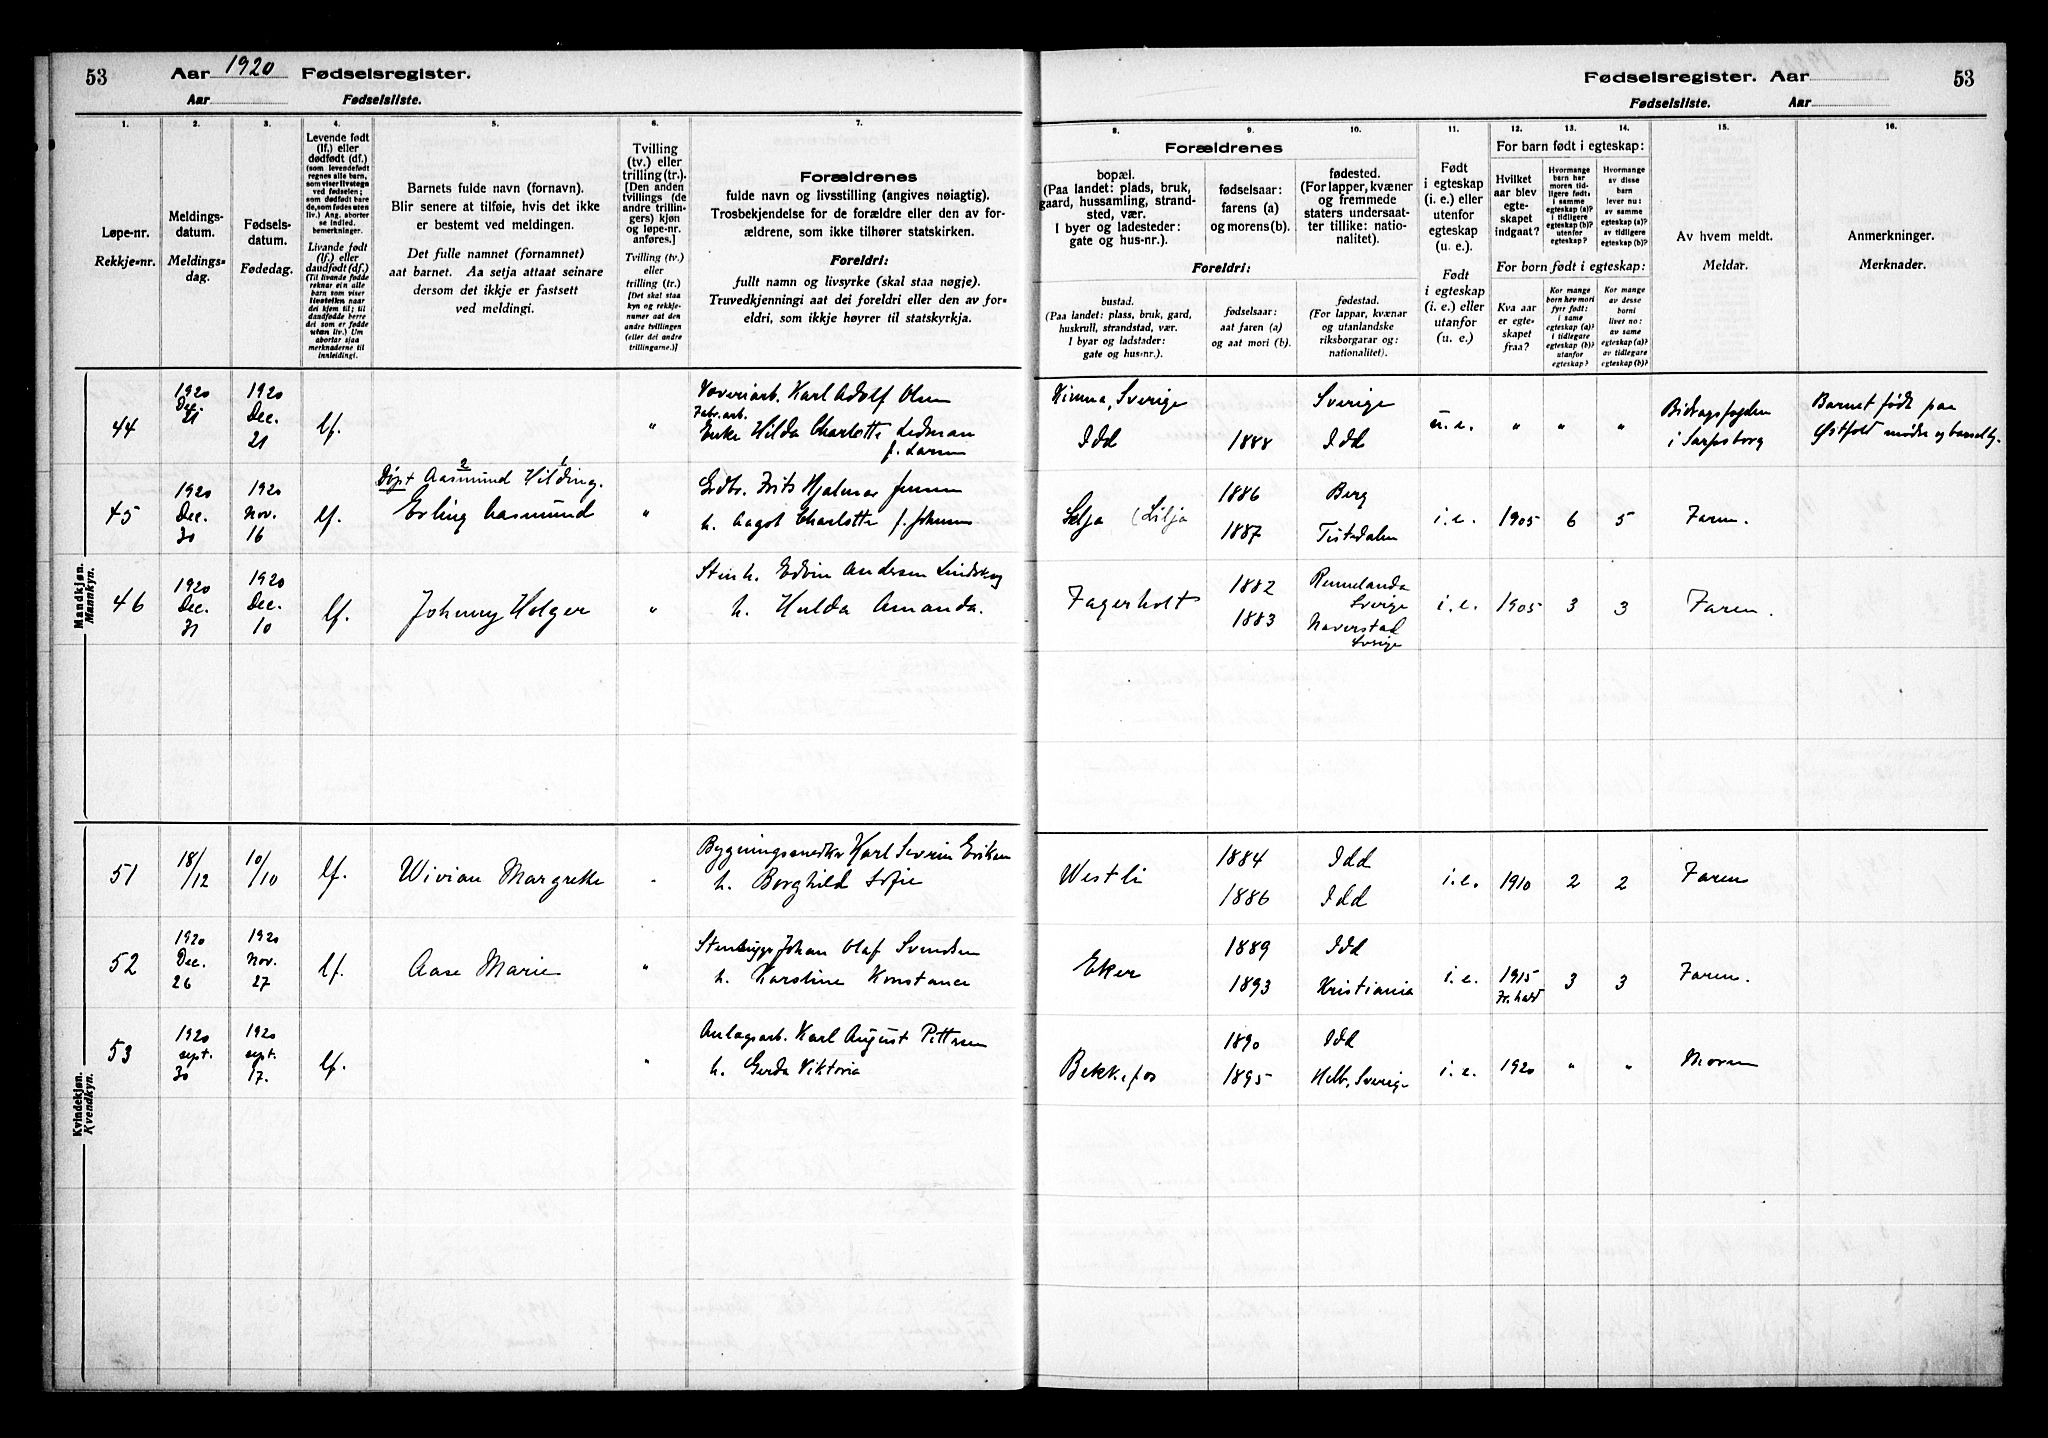 53
Aar 1920 Fødselsregister.
Aar Fødselsliste.
Fødselsregister. Aar
53
Fødselsliste. Aar
1.
Løpe-nr.
Rekkje-nr.
2.
Meldings-
datum.
Meldings-
dag.
3.
Fødsels-
datum.
Fødedag.
4.
Levende født
(lf.) eller
dødfødt (df.)
(som levendefødt
regnes alle barn,
som viser livstegn
ved fødselen;
som dødfødt bare
de, som fødes uten
liv.) Ang. aborter
se indled.
bemerkninger.
Livande født
(lf.) eller
daudfødt (df.)
(Til livande fødde
reknar ein alle
barn som viser
livsteikn naar
dei kjem til; til
daudfødde berre
dei som er fødde
utan liv.) Um
abortar sjaa
merknaderne til
innleidingi.
5.
Barnets fulde navn (fornavn).
Blir senere at tilføie, hvis det ikke
er bestemt ved meldingen.
Det fulle namnet (fornamnet)
aat barnet. Aa setja attaat seinare
dersom det ikkje er fastsett
ved meldingi.
6.
Tvilling
(tv.) eller
trilling (tr.).
[Den anden
tvillings (de
andre trillin-
gers) kjøn
og løpe-nr.
anføres.]
Tvilling (tv.)
eller
trilling (tr.)
[Det skal staa
kyn og rekkje-
numer aat den
andre tvillingen
(eller dei andre
trillingarne.)]
7.
Forældrenes
fulde navn og livsstilling (angives nøiagtig).
Trosbekjendelse for de forældre eller den av for-
ældrene, som ikke tilhører statskirken.
Foreldri:
fullt namn og livsyrke (skal staa nøgje).
Truvedkjenningi aat dei foreldri eller den av for-
eldri, som ikkje høyrer til statskyrkja.
Forældrenes
8.
bopæl.
(Paa landet: plads, bruk,
gaard, hussamling, strand-
sted, vær.
I byer og ladesteder:
gate og hus-nr.).
9.
fødselsaar:
farens (a)
og morens (b).
10.
fødested.
(For lapper, kvæner
og fremmede
staters undersaat-
ter tillike: natio-
nalitet).
Foreldri:
bustad.
(Paa landet: plass, bruk, gard,
huskrull, strandstad, vær.
I byar og ladstader:
gate og hus-nr.).
fødselsaar:
aat faren (a)
og aat mori (b).
fødestad.
(For lappar, kvænar
og utanlandske
riksborgarar og:
nationalitet).
11.
Født
i egteskap
(i. e.) eller
utenfor
egteskap
(u. e.).
Født
i egteskap
(i. e.) eller
utanfor
(u. e.)
12. 13. 14.
For barn født i egteskap:
Hvilket
aar blev
egte-
skapet
indgaat?
Hvormange
barn har
moren tid-
ligere født:
i samme
egteskap (a)?
i tidligere
egteskap (b)?
utenfor
egteskap?
Hvormange
av disse
barn
lever nu:
av samme
egteskap (a)?
av tidligere
egteskap (b)?
For born født i egteskap:
Kva aar
er egte-
skapet
fraa?
Kor mange
born hev mori
fyrr født:
i same
egteskap (a)?
i tidlegare
egteskap (b)?
utanfor
egteskap?
Kor mange
av desse
borni
liver no:
av same
egteskap (a)?
av tidlegare
egteskap (b)?
15.
Av hvem meldt.
Meldar.
16.
Anmerkninger.
Merknader.
Mandkjøn.
Mannkyn.
44 1920 Dec. 21 1920 Dec. 21 lf. "
Væveriarb. Karl Adolf Olsen
Fabr.arb.
Enke Hilda Charlotte Ledman
f. Larsen
Kinna, Sverige Sverige
Idd 1888 Idd
u.e. " " "
Bidragsfogden
i Sarpsborg
Barnet født paa
Østfold mødre og barselhj.
Døpt Aasmund 2 Hilding 1.
45 1920 Dec. 30 1920 Nov. 16 lf. Erling Aasmund "
Grdbr. Frits Hjalmar Jensen
h. Aagot Charlotte f. Johnsen
Selja (Lilja
1886 Berg
1887 Tistedalen
i.e. 1905 6 5 Faren.
46 1920 Dec. 31 1920 Dec. 10 lf. Johnny Holger "
Stenh. Edvin Andersen Lindskog
h. Hulda Amanda.
Fagerholt
1882 Rennelanda
Sverige
1883 Naverstad
Sverige
i.e. 1905 3 3 Faren.
Kvindekjøn.
Kvendkyn.
51 18/12 10/10 lf. Wivian Margrethe
Bygningssnedker Karl Severin Eriksen
h. Borghild Sofie
Westli
1884 Idd
1886 Idd
i.e. 1910 2 2 Faren
52 1920 Dec. 26 1920 Nov. 27 lf. Aase Marie "
Stenhugger Johan Olaf Svendsen
h. Karoline Konstance
Eker
1889 Idd
1893 Kristiania
i.e. 1915 Fr.hald 3 3 Faren.
53 1920 sept. 30 1920 sept. 17. lf. "
Anlægsarb. Karl August Pettersen
h. Gerda Viktoria
Bekkefos
1890 Idd
1895 Sverige
i.e. 1920 " " Moren